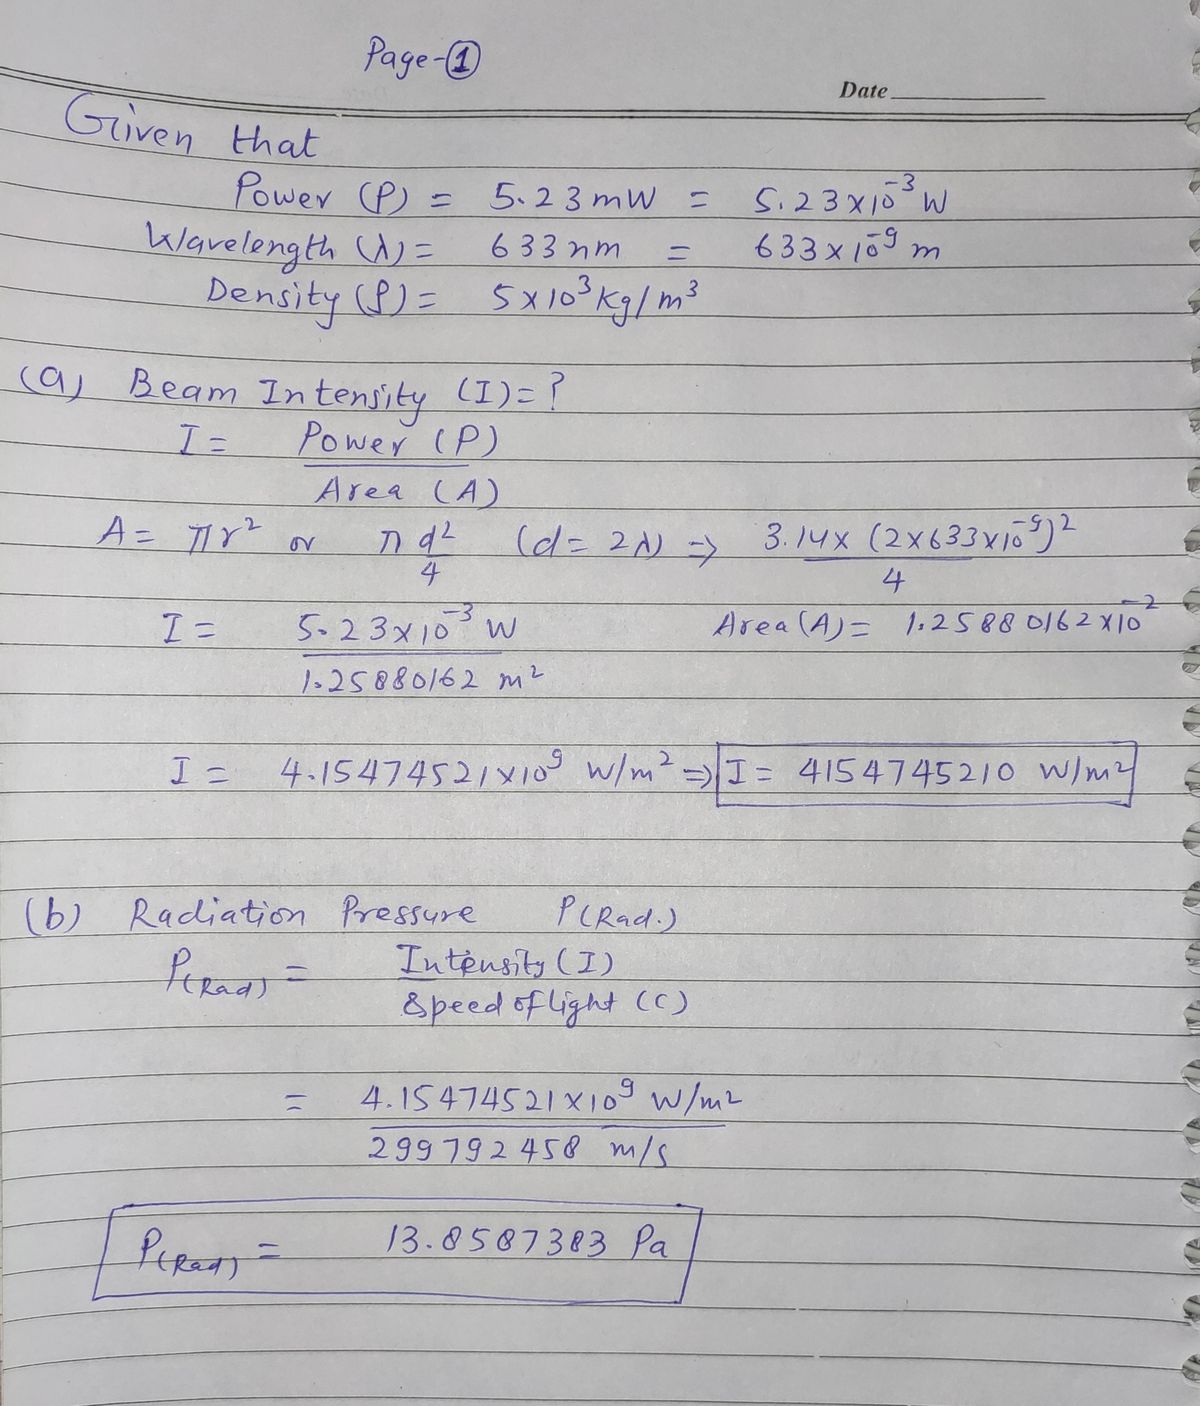 Page-①
Date
Given that
Power (P) = 5.23 mW = 5.23x10⁻³ W
Wavelength (λ) = 633 nm = 633 x 10⁻⁹ m
Density (ρ) = 5x10³ Kg/m³
(a) Beam Intensity (I) = ?
I = Power (P)
Area (A)
A = πr² or πd²/4 (d = 2λ) => 3.14x (2x633x10⁻⁹)²/4
I = 5.23x10⁻³ W Area (A) = 1.25880162 x10⁻²
1.25880162 m²
I = 4.15474521x10⁹ W/m² => I = 4154745210 W/m²
(b) Radiation Pressure P(Rad.)
P(Rad) = Intensity (I)
Speed of light (C)
= 4.15474521x10⁹ W/m²
299792458 m/s
P(Rad) = 13.8587383 Pa